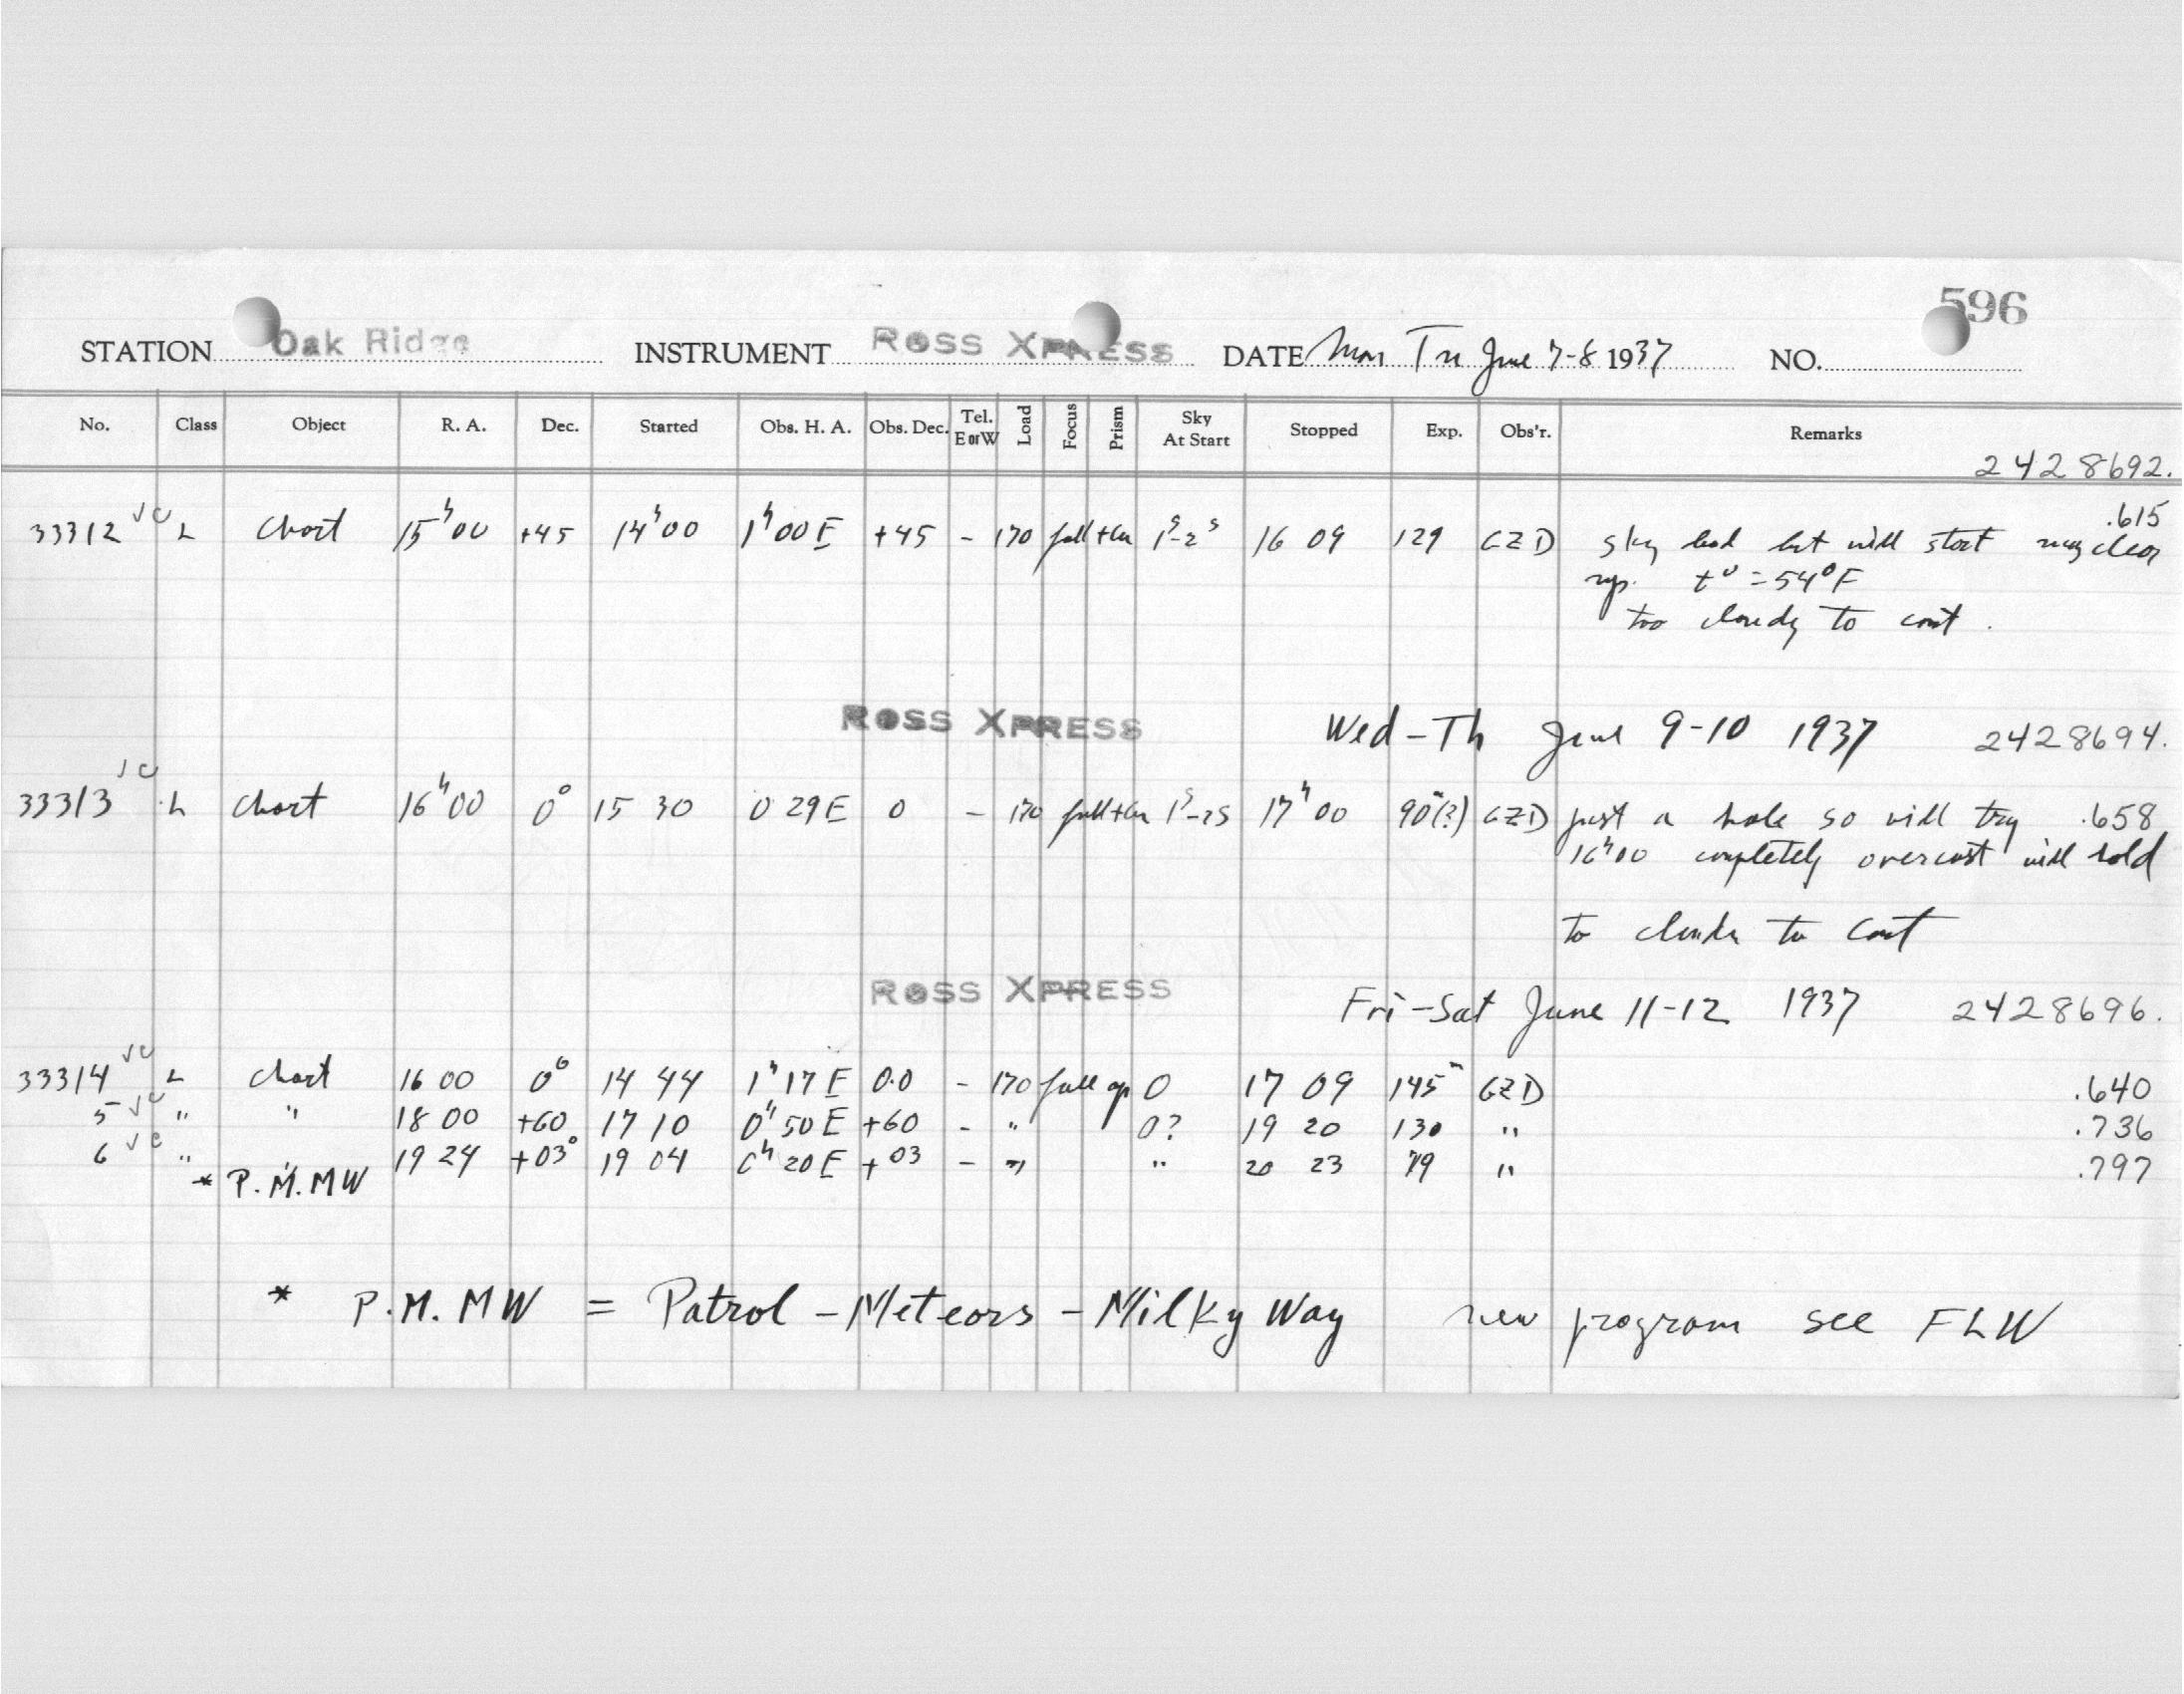 596
STATION Oak Ridge INSTRUMENT ROSS XPRESS DATE Mon Tu June 7-8 1937 NO.
No. Class Object R. A. Dec. Started Obs. H. A. Obs. Dec. Tel. E or W Load Focus Prism Sky At Start Stopped Exp. Obs'r. Remarks
2428692.
.615
33312 L Chart 15ʰ00 +45 14ʰ00 1ʰ00 E +45 - 170 full 1ˢ-2ˢ 16 09 129 GZD sky bad but will start may clear
up. t° = 54°F
too cloudy to cont.
ROSS XPRESS Wed-Th June 9-10 1937 2428694.
33313 L Chart 16ʰ00 0° 15 30 0 29 E 0 - 170 full 1ˢ-2S 17ʰ00 90ᵐ(?) GZD just a hole so will try .658
16ʰ00 completely overcast will hold
to cloudy to cont
ROSS XPRESS Fri-Sat June 11-12 1937 2428696.
33314 L Chart 16 00 0° 14 44 1ʰ17 E 0.0 - 170 full op 0 17 09 145ᵐ GZD .640
5 " " 18 00 +60 17 10 0ʰ50 E +60 - " 0? 19 20 130 " .736
6 " " 19 24 +03° 19 04 0ʰ20 E +03 - " " 20 23 79 " .797
* P.M.MW
* P.M.MW = Patrol-Meteors-Milky Way new program see FLW